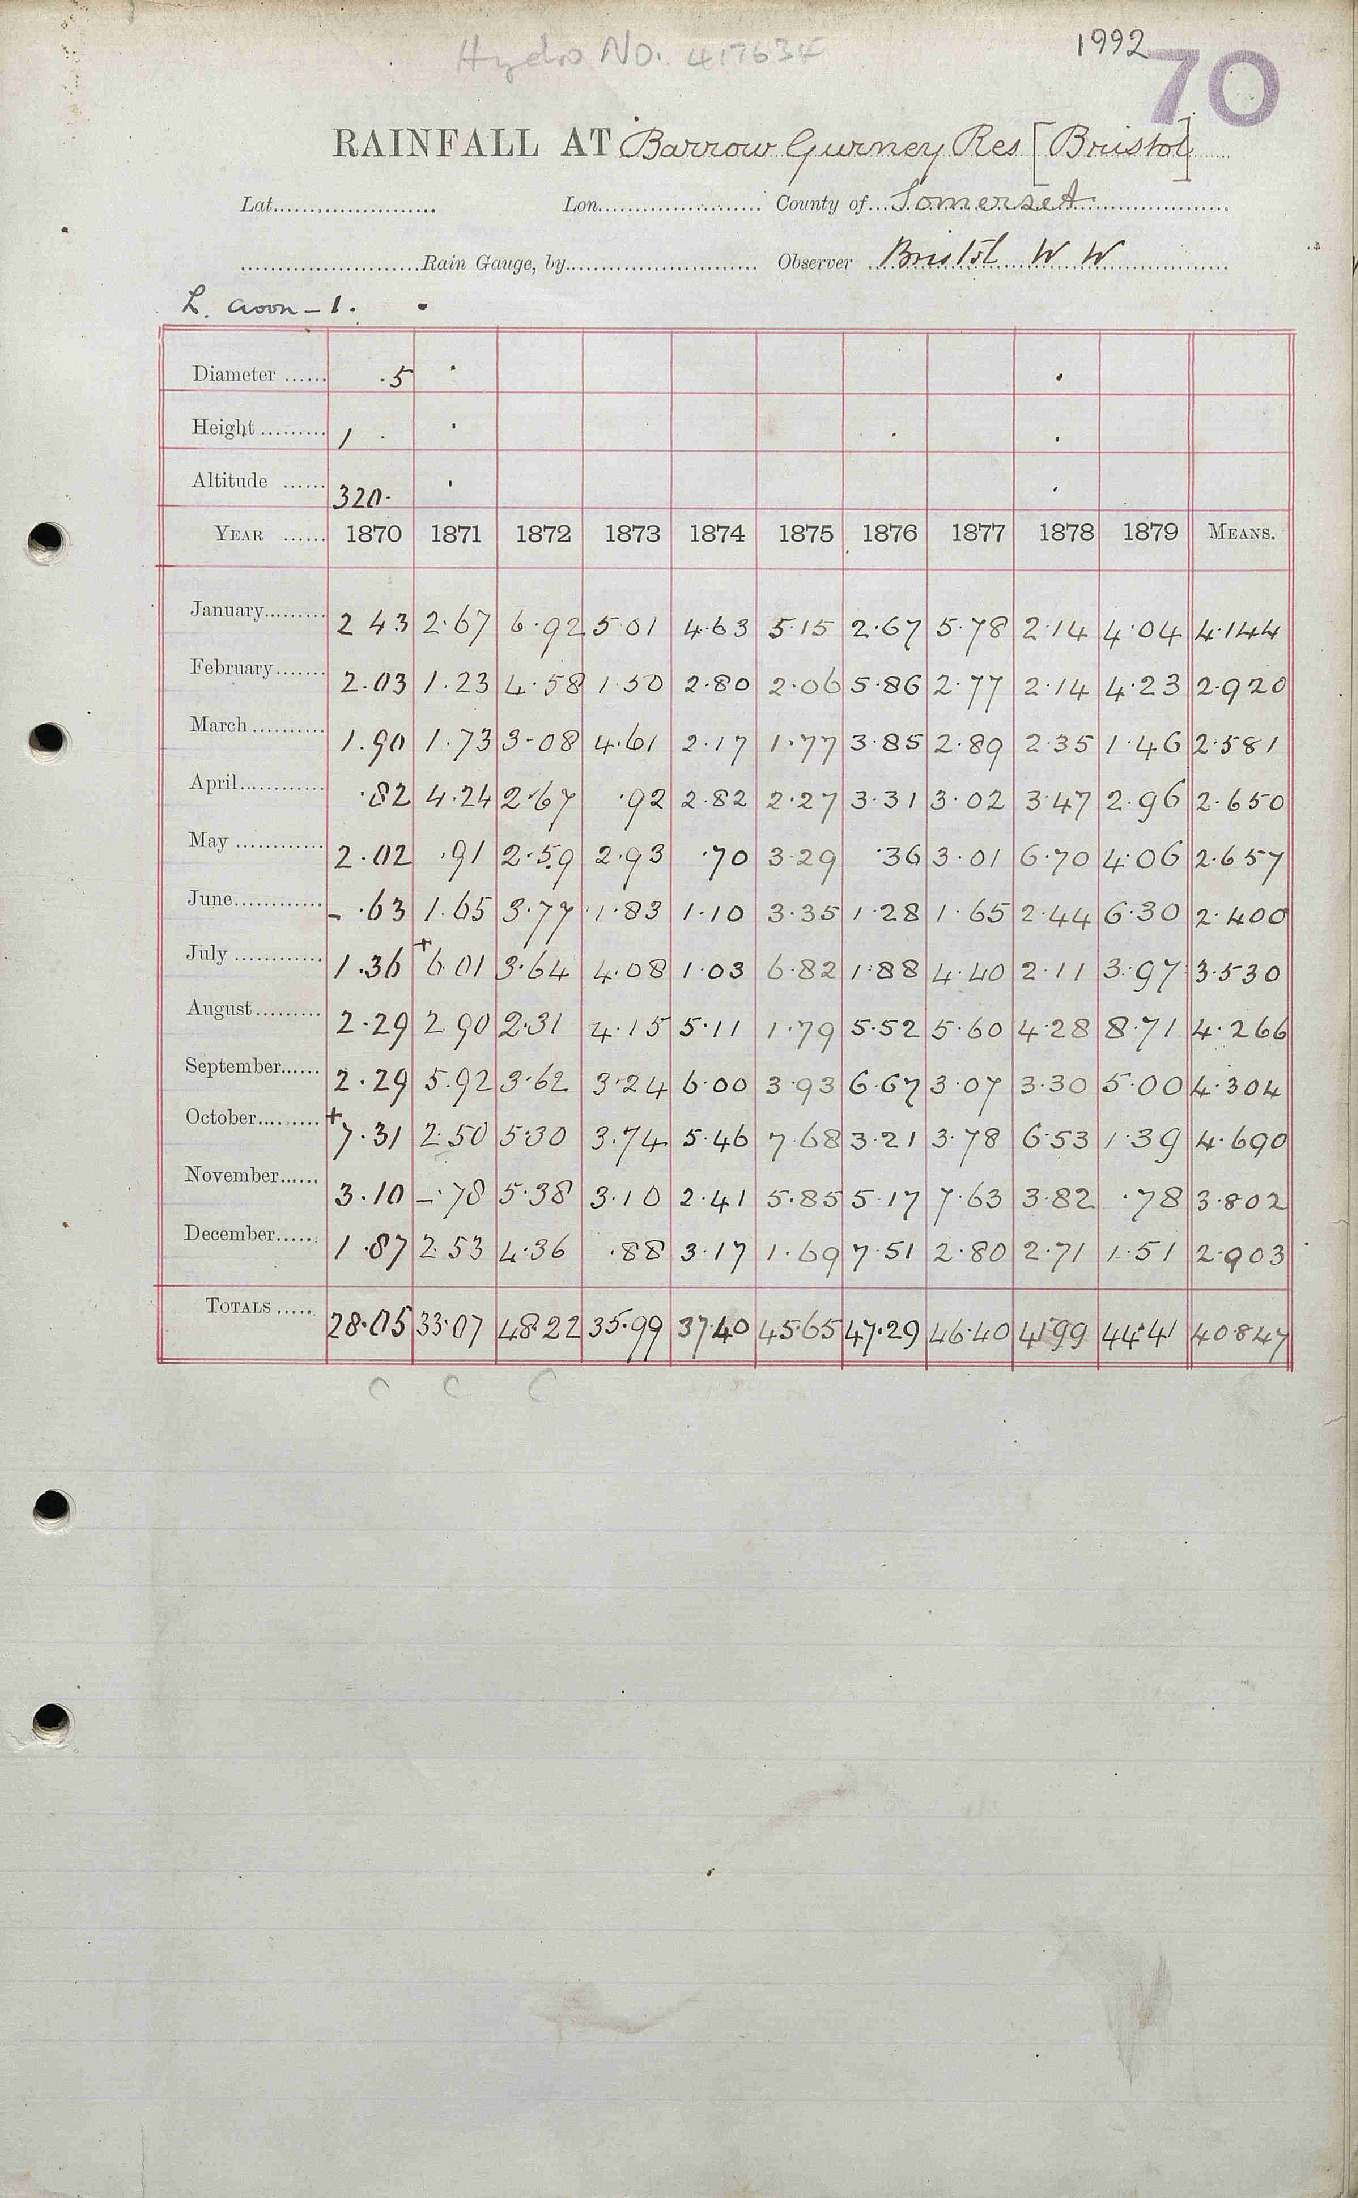 Hydro No. 417634
1992
70
RAINFALL AT Barrow Gurney Res [Bristol]
Lat. Lon. County of Somerset
Rain Gauge, by Observer Bristol W W
L. Avon - 1.
Diameter ...... .5
Height ......... 1
Altitude ...... 320.
YEAR ...... 1870 1871 1872 1873 1874 1875 1876 1877 1878 1879 MEANS.
January......... 2 43 2.67 6.92 5.01 4.63 5.15 2.67 5.78 2.14 4.04 4.144
February....... 2.03 1.23 4.58 1.50 2.80 2.06 5.86 2.77 2.14 4.23 2.920
March .......... 1.90 1.73 3.08 4.61 2.17 1.77 3.85 2.89 2.35 1.46 2.581
April............ .82 4.24 2.67 .92 2.82 2.27 3.31 3.02 3.47 2.96 2.650
May ............ 2.02 .91 2.59 2.93 .70 3.29 .36 3.01 6.70 4.06 2.657
June............ - .63 1.65 3.77 1.83 1.10 3.35 1.28 1.65 2.44 6.30 2.400
July ............ 1.36 + 6.01 3.64 4.08 1.03 6.82 1.88 4.40 2.11 3.97 3.530
August......... 2.29 2 90 2.31 4.15 5.11 1.79 5.52 5.60 4.28 8.71 4.266
September...... 2.29 5.92 3.62 3.24 6.00 3.93 6.67 3.07 3.30 5.00 4.304
October......... + 7.31 2.50 5.30 3.74 5.46 7.68 3.21 3.78 6.53 1.39 4.690
November...... 3.10 - .78 5.38 3.10 2.41 5.85 5.17 7.63 3.82 .78 3.802
December...... 1.87 2.53 4.36 .88 3.17 1.69 7.51 2.80 2.71 1.51 2.903
TOTALS ..... 28.05 33.07 48.22 35.99 37.40 45.65 47.29 46.40 41.99 44.41 40.847
C C C